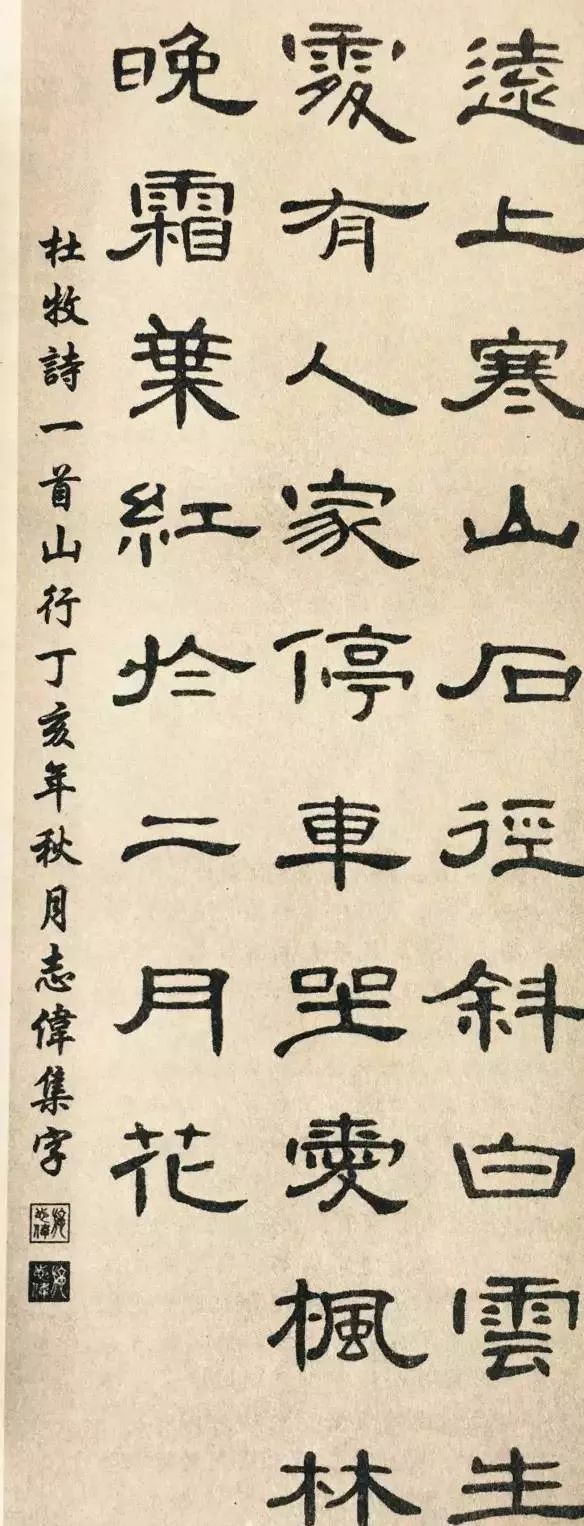 遠上寒山石徑斜白雲生
處有人家停車坐愛楓林
晚霜葉紅於二月花
杜牧詩一首山行丁亥年秋月志偉集字